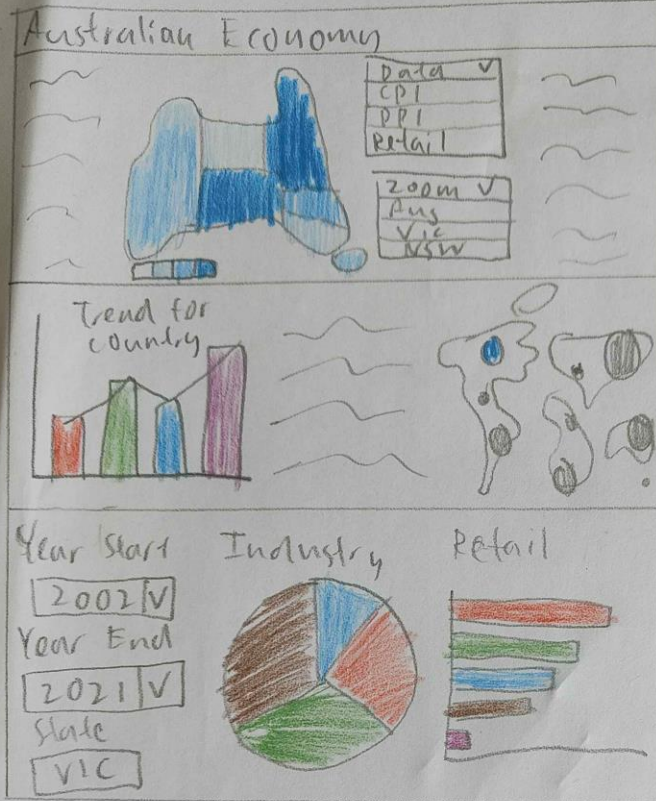 Australian Economy
Data V
CPI
PPI
Retail
Zoom V
Aus
Vic
NSW
Trend for
country
Year Start
2002 V
Year End
2021 V
State
VIC
Industry
Retail